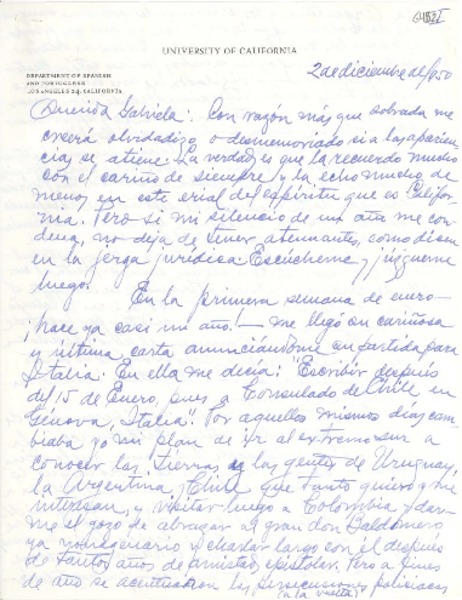 UNIVERSITY OF CALIFORNIA
DEPARTMENT OF SPANISH
AND PORTUGUESE
LOS ANGELES 24, CALIFORNIA
2 de diciembre de 1950
Querida Gabriela: Con razón más que sobrada me
creerá olvidadizo o desmemoriado si a las aparien-
cias se atiene. La verdad es que la recuerdo mucho
con el cariño de siempre y la echo mucho de
menos en este erial del espíritu que es Califor-
nia. Pero si mi silencio de un año me con-
dena, no deja de tener atenuantes, como dicen
en la jerga jurídica. Escúcheme y júzgueme
luego.
En la primera semana de enero—
¡hace ya casi un año!— me llegó su cariñosa
y última carta anunciándome su partida para
Italia. En ella me decía: "Escribir después
del 15 de Enero, pues a Consulado de Chile, en
Génova, Italia". Por aquellos mismos días cam-
biaba yo mi plan de ir al extremo sur a
conocer las tierras y las gentes de Uruguay,
la Argentina y Chile que tanto quiero y me
interesan, y visitar luego a Colombia y dar-
me el gozo de abrazar al gran don Baldomero
ya nonagenario y charlar largo con él después
de tantos años de amistad epistolar. Pero a fines
de año se acentuaron las persecuciones policíacas
(a la vuelta)